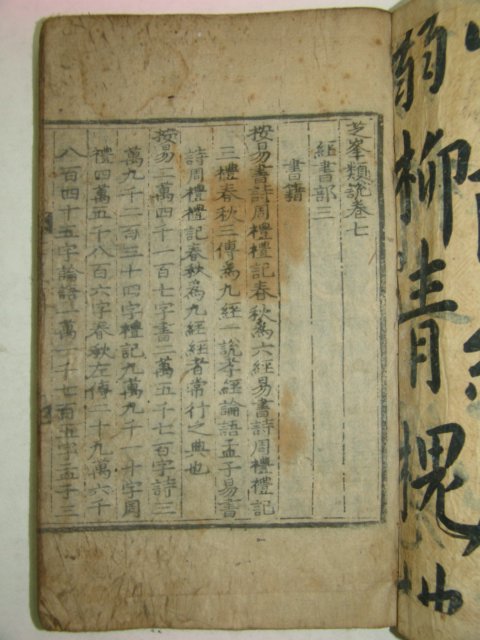 弱柳青槐
芝峯類說卷七
經書部三
書籍
按易書詩周禮禮記春秋為六經易書詩周禮禮記
三禮春秋三傳為九經一說孝經論語孟子易書
詩周禮禮記春秋為九經經者常行之典也
按易二萬四千一百七字書二萬五千七百字詩三
萬九千二百三十四字禮記九萬九千一十字周
禮四萬五千八百六字春秋左傳二十九萬六千
八百四十五字論語一萬一千七百五字孟子三